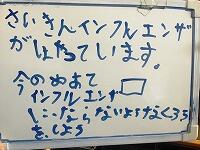 さいきんインフルエンザ
がはやっています。
今のめあて
インフルエンザー
にならないよう
をしよう